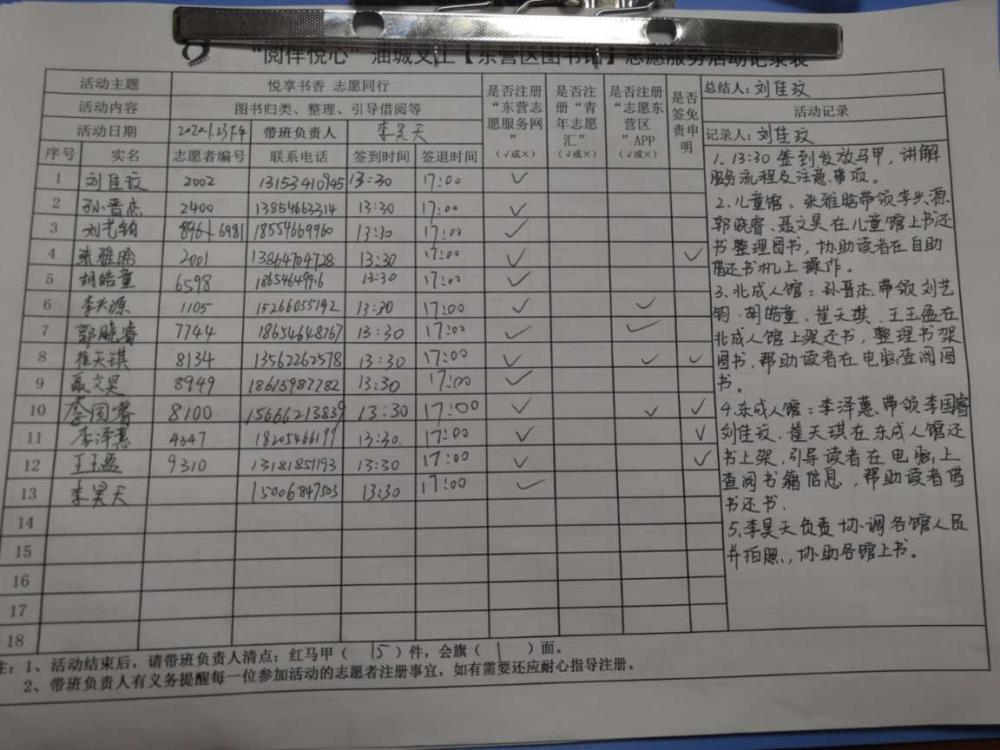 “阅伴悦心”油城义工【东营区图书馆】志愿服务活动记录表
活动主题 悦享书香 志愿同行
活动内容 图书归类、整理、引导借阅等
活动日期 2022.1.23下午 带班负责人 李昊天
序号 实名 志愿者编号 联系电话 签到时间 签退时间 是否注册“东营志愿服务网”(√或×) 是否注册“青年志愿汇”(√或×) 是否注册“志愿东营区”APP(√或×) 是否签免责申明
1 刘佳玟 2002 13153410945 13:30 17:00 ✓
2 孙晋杰 2400 13854662314 13:30 17:00 ✓
3 刘艺钧 8961-6981 18554669960 13:30 17:00 ✓
4 张雅晗 2001 13864704728 13:30 17:00 ✓ ✓
5 胡皓童 6598 13:30 17:00 ✓
6 李兴源 1105 15266055192 13:30 17:00 ✓ ✓
7 郭晓睿 7744 18654648767 13:30 17:00 ✓ ✓
8 崔天琪 8134 13562262578 13:30 17:00 ✓ ✓ ✓
9 聂文昊 8949 18615987782 13:30 17:00 ✓
10 李国睿 8100 15666213839 13:30 17:00 ✓ ✓ ✓
11 李泽蕙 4347 18205466199 13:30 17:00 ✓ ✓
12 王玉盈 9310 13181851193 13:30 17:00 ✓ ✓
13 李昊天 15006847503 13:30 17:00 ✓
14
15
16
17
18
总结人：刘佳玟
活动记录
记录人：刘佳玟
1.13:30签到发放马甲，讲解
服务流程及注意事项。
2.儿童馆：张雅晗带领李兴源
郭晓睿、聂文昊在儿童馆上书还
书整理图书，协助读者在自助
借还书机上操作。
3.北成人馆：孙晋杰带领刘艺
钧、胡皓童、崔天琪、王玉盈在
北成人馆上架还书，整理书架
图书，帮助读者在电脑查阅图
书。
4.东成人馆：李泽蕙带领李国睿
刘佳玟、崔天琪在东成人馆还
书上架，引导读者在电脑上
查阅书籍信息，帮助读者借
书还书.
5.李昊天负责协调各馆人员
并拍照，协助各馆上书。
注：1、活动结束后，请带班负责人清点：红马甲（15）件，会旗（1）面。
2、带班负责人有义务提醒每一位参加活动的志愿者注册事宜，如有需要还应耐心指导注册。